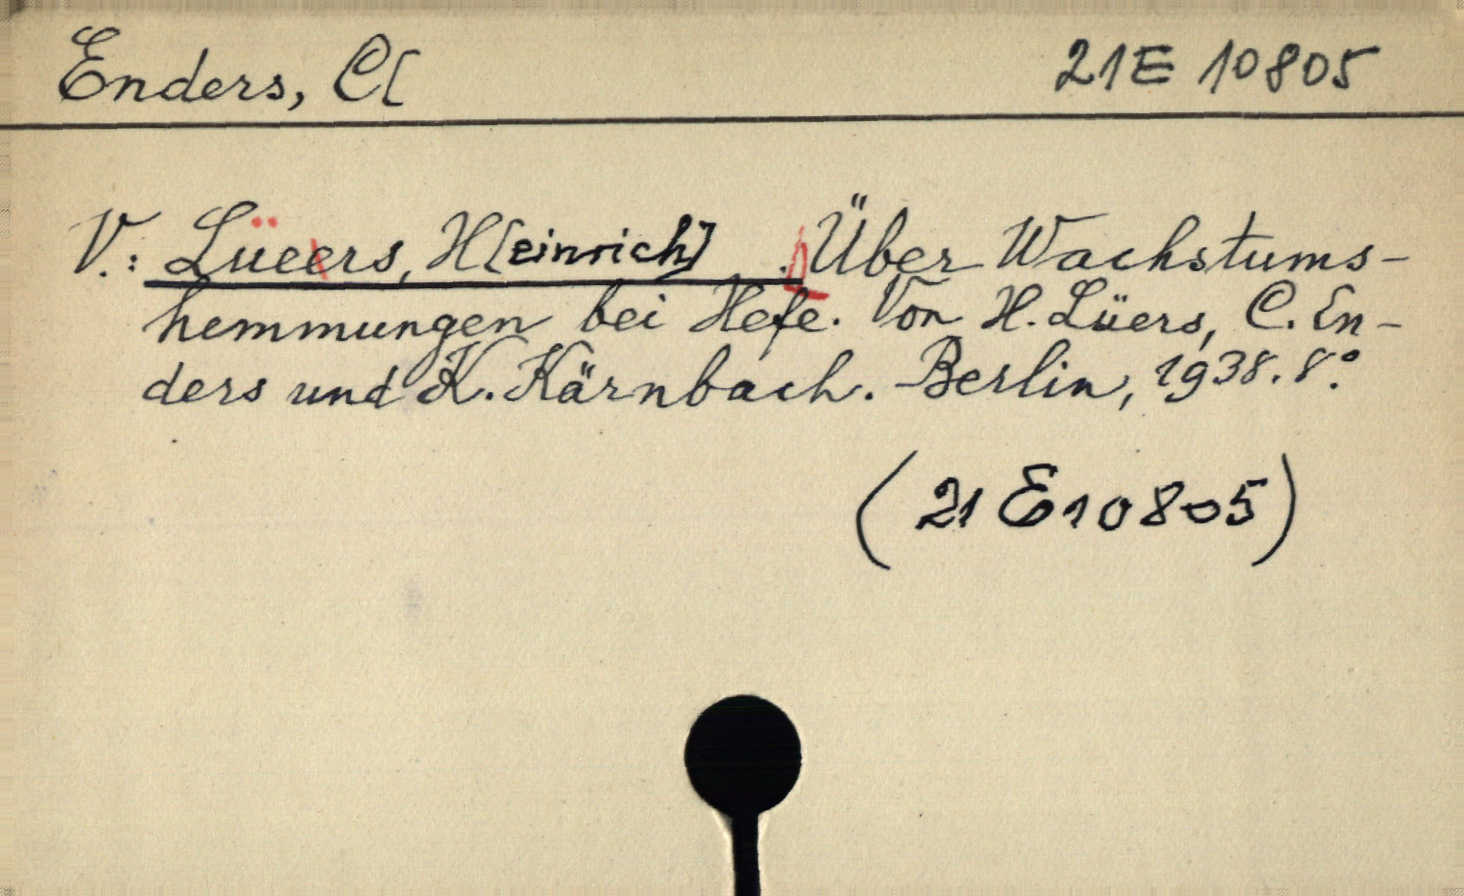 Enders, C[
21E 10805
V.: Lüers, H[einrich]. Über Wachstums-
hemmungen bei Hefe. Von H. Lüers, C. En-
ders und K. Kärnbach. - Berlin, 1938. 8°.
(21 E 10805)